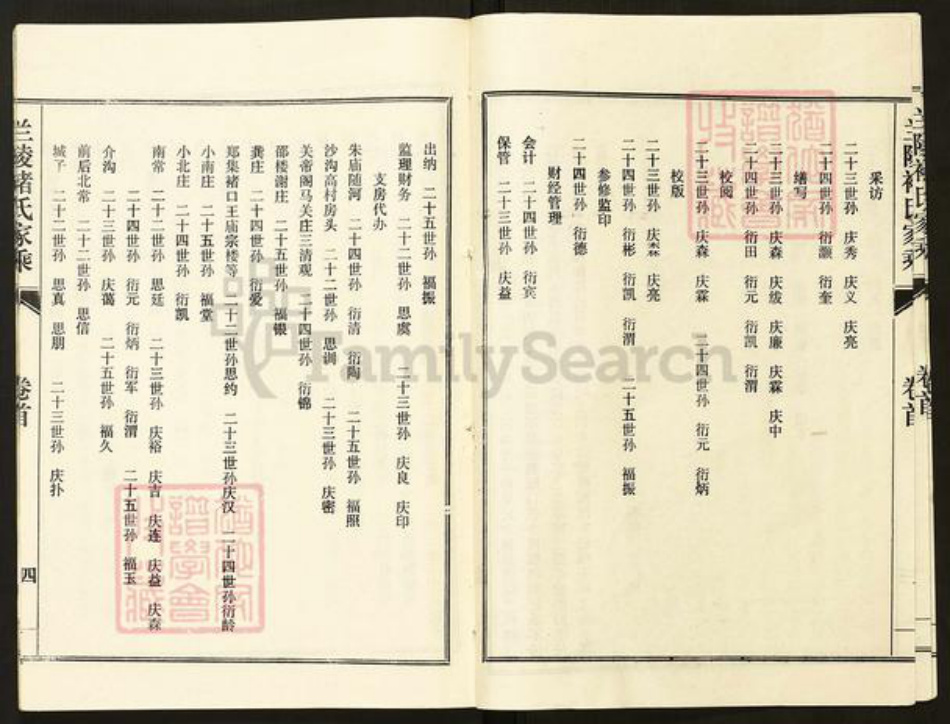 兰陵褚氏家乘
卷首
采访
二十三世孙 庆秀 庆义 庆亮
二十四世孙 衍灏 衍奎
缮写
二十三世孙 庆森 庆绂 庆廉 庆霖 庆中
二十四世孙 衍田 衍元 衍凯 衍渭
校阅
二十三世孙 庆森 庆霖 二十四世孙 衍元 衍炳
校版
二十三世孙 庆森 庆亮
二十四世孙 衍彬 衍凯 衍渭 二十五世孙 福振
参修监印
二十四世孙 衍德
财经管理
会计 二十四世孙 衍宾
保管 二十三世孙 庆益
出纳 二十五世孙 福振
监理财务 二十二世孙 思虞 二十三世孙 庆良 庆印
支房代办
朱庙随河 二十四世孙 衍清 衍陶 二十五世孙 福照
沙沟高村房头 二十二世孙 思训 二十三世孙 庆密
关帝阁马关庄三清观 二十四世孙 衍锦
邵楼谢庄 二十五世孙 福银
龚庄 二十四世孙 衍爱
郑集褚口王庙宗楼等 二十二世孙思约 二十三世孙庆汉 二十四世孙衍龄
小南庄 二十五世孙 福堂
小北庄 二十四世孙 衍凯
南常 二十二世孙 思廷 二十三世孙 庆裕 庆吉 庆连 庆益 庆森
二十四世孙 衍元 衍炳 衍军 衍渭 二十五世孙 福玉
介沟 二十三世孙 庆蔼 二十五世孙 福久
前后北常 二十二世孙 思信
城子 二十二世孙 思真 思朋 二十三世孙 庆扑
兰陵褚氏家乘
卷首
四
FamilySearch